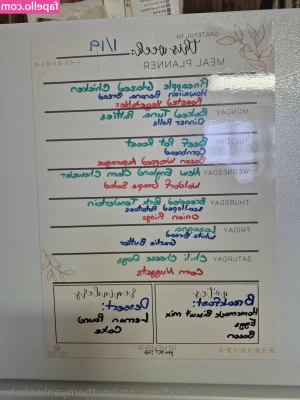 fapello.com
GRATEFUL for
this week: 1/19
MEAL PLANNER
Pineapple Glazed Chicken
Hawaiian Banana Bread
Roasted Vegetables
MONDAY
Baked Tuna Patties
Dinner Rolls
TUESDAY
Beef Pot Roast
Cornbread
Bacon Wrapped Asparagus
WEDNESDAY
New England Clam Chowder
Waldorf Grape Salad
THURSDAY
Breaded Pork Tenderloin
Scalloped Potatoes
Onion Rings
FRIDAY
Lasagna
White Bread
Garlic Butter
SATURDAY
Chili Cheese Dogs
Corn Nuggets
notes
Breakfast:
Homemade Biscuit mix
Eggs
Bacon
reminders
Dessert:
Lemon Pound
Cake